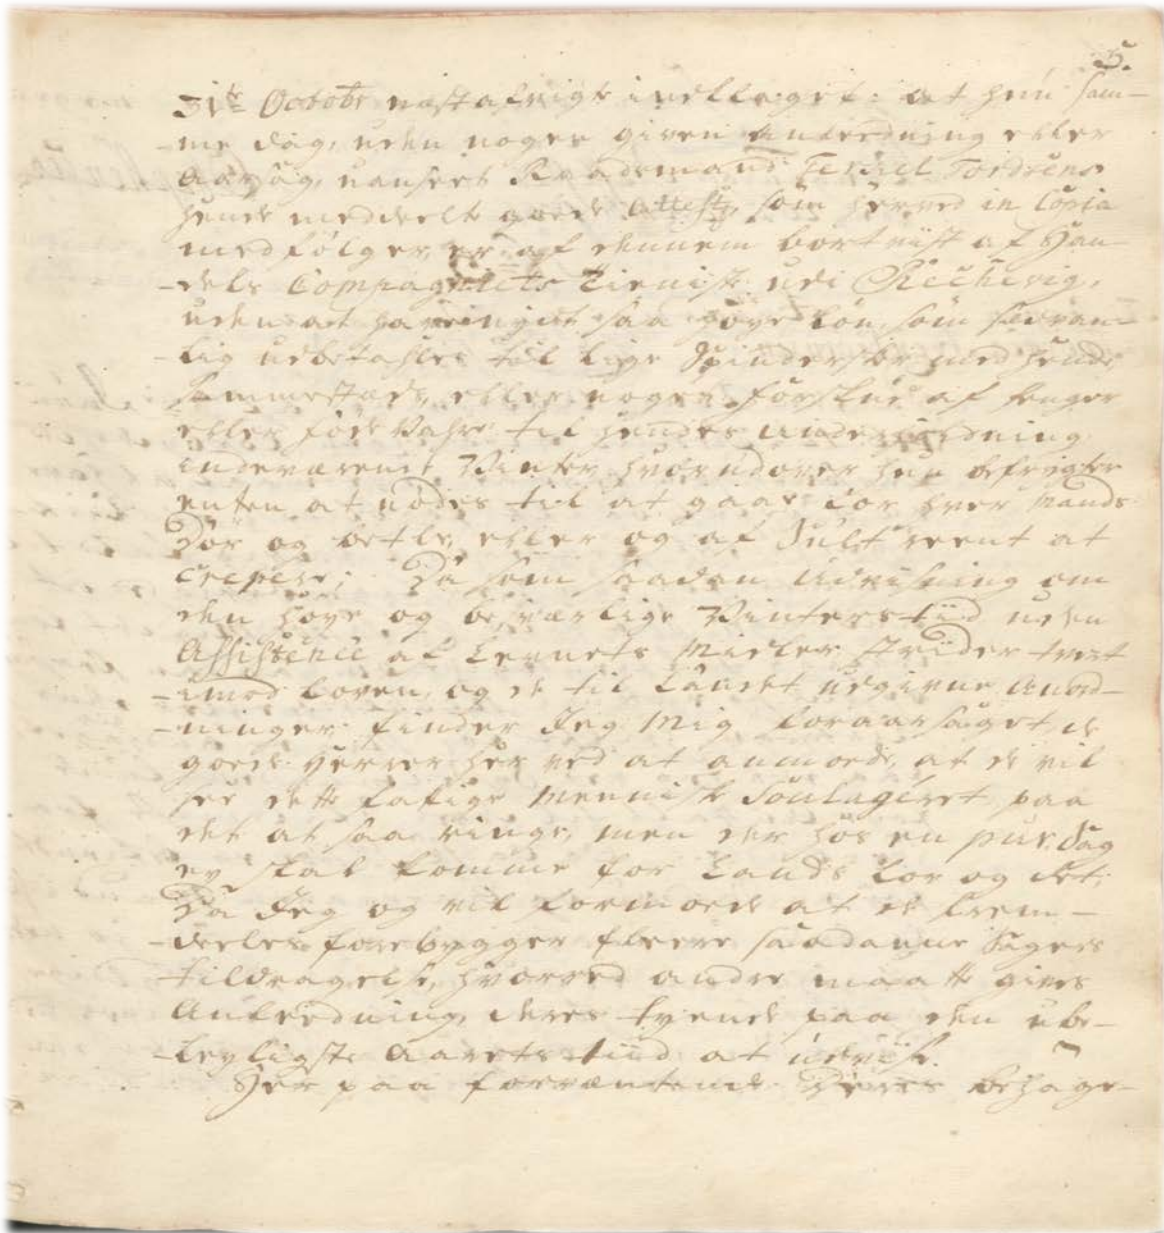 5.
31te Octobr næstafvigt indklaget: at hun sam-
-me dag, uden nogen given Anledning eller
Aarsag, uanseet Raadsmand
hende meddeelte goede Attest, som herved in Copia
medfølger, er af dennem bortviist af Han-
-dels Compagniets Tieniste udi Reichevig,
uden at have nydt saa høye Løn, som sædvan-
-lig udbetahles til lige Spindersker med hende
sammestæds, eller nogen Forskud af Penger
eller føde Vahre til hendes Underholdning
indeværende Vinter, hvorudover hun befrygter
enten at nødes til at gaae for hver Mands
Dør og betle, eller og af Sult reent at
Crepere; Da som saadan Udviisning om
den høye og besværlige Vinters tiid uden
Assistence af Levnets Midler strider tvert
-imod Loven, og de til Landet udgivne Anord-
-ninger finder Jeg mig foraarsaget, de
goede Herrer her ved at anmode, at de vil
see dette fattige Menniske Soulageret paa
det at saa ringe, men der hos en pur Sag
ey skal komme for Lands Lov og Ret;
Da Jeg og vil formode at de frem-
-deeles forebygger fleere saadanne Sagers
tildragelse, hvorved andre maatte gives
Anledning, deres tyende paa den ube-
-leyligste Aarets tiid at udviise.
Her paa forventende Deres behage-